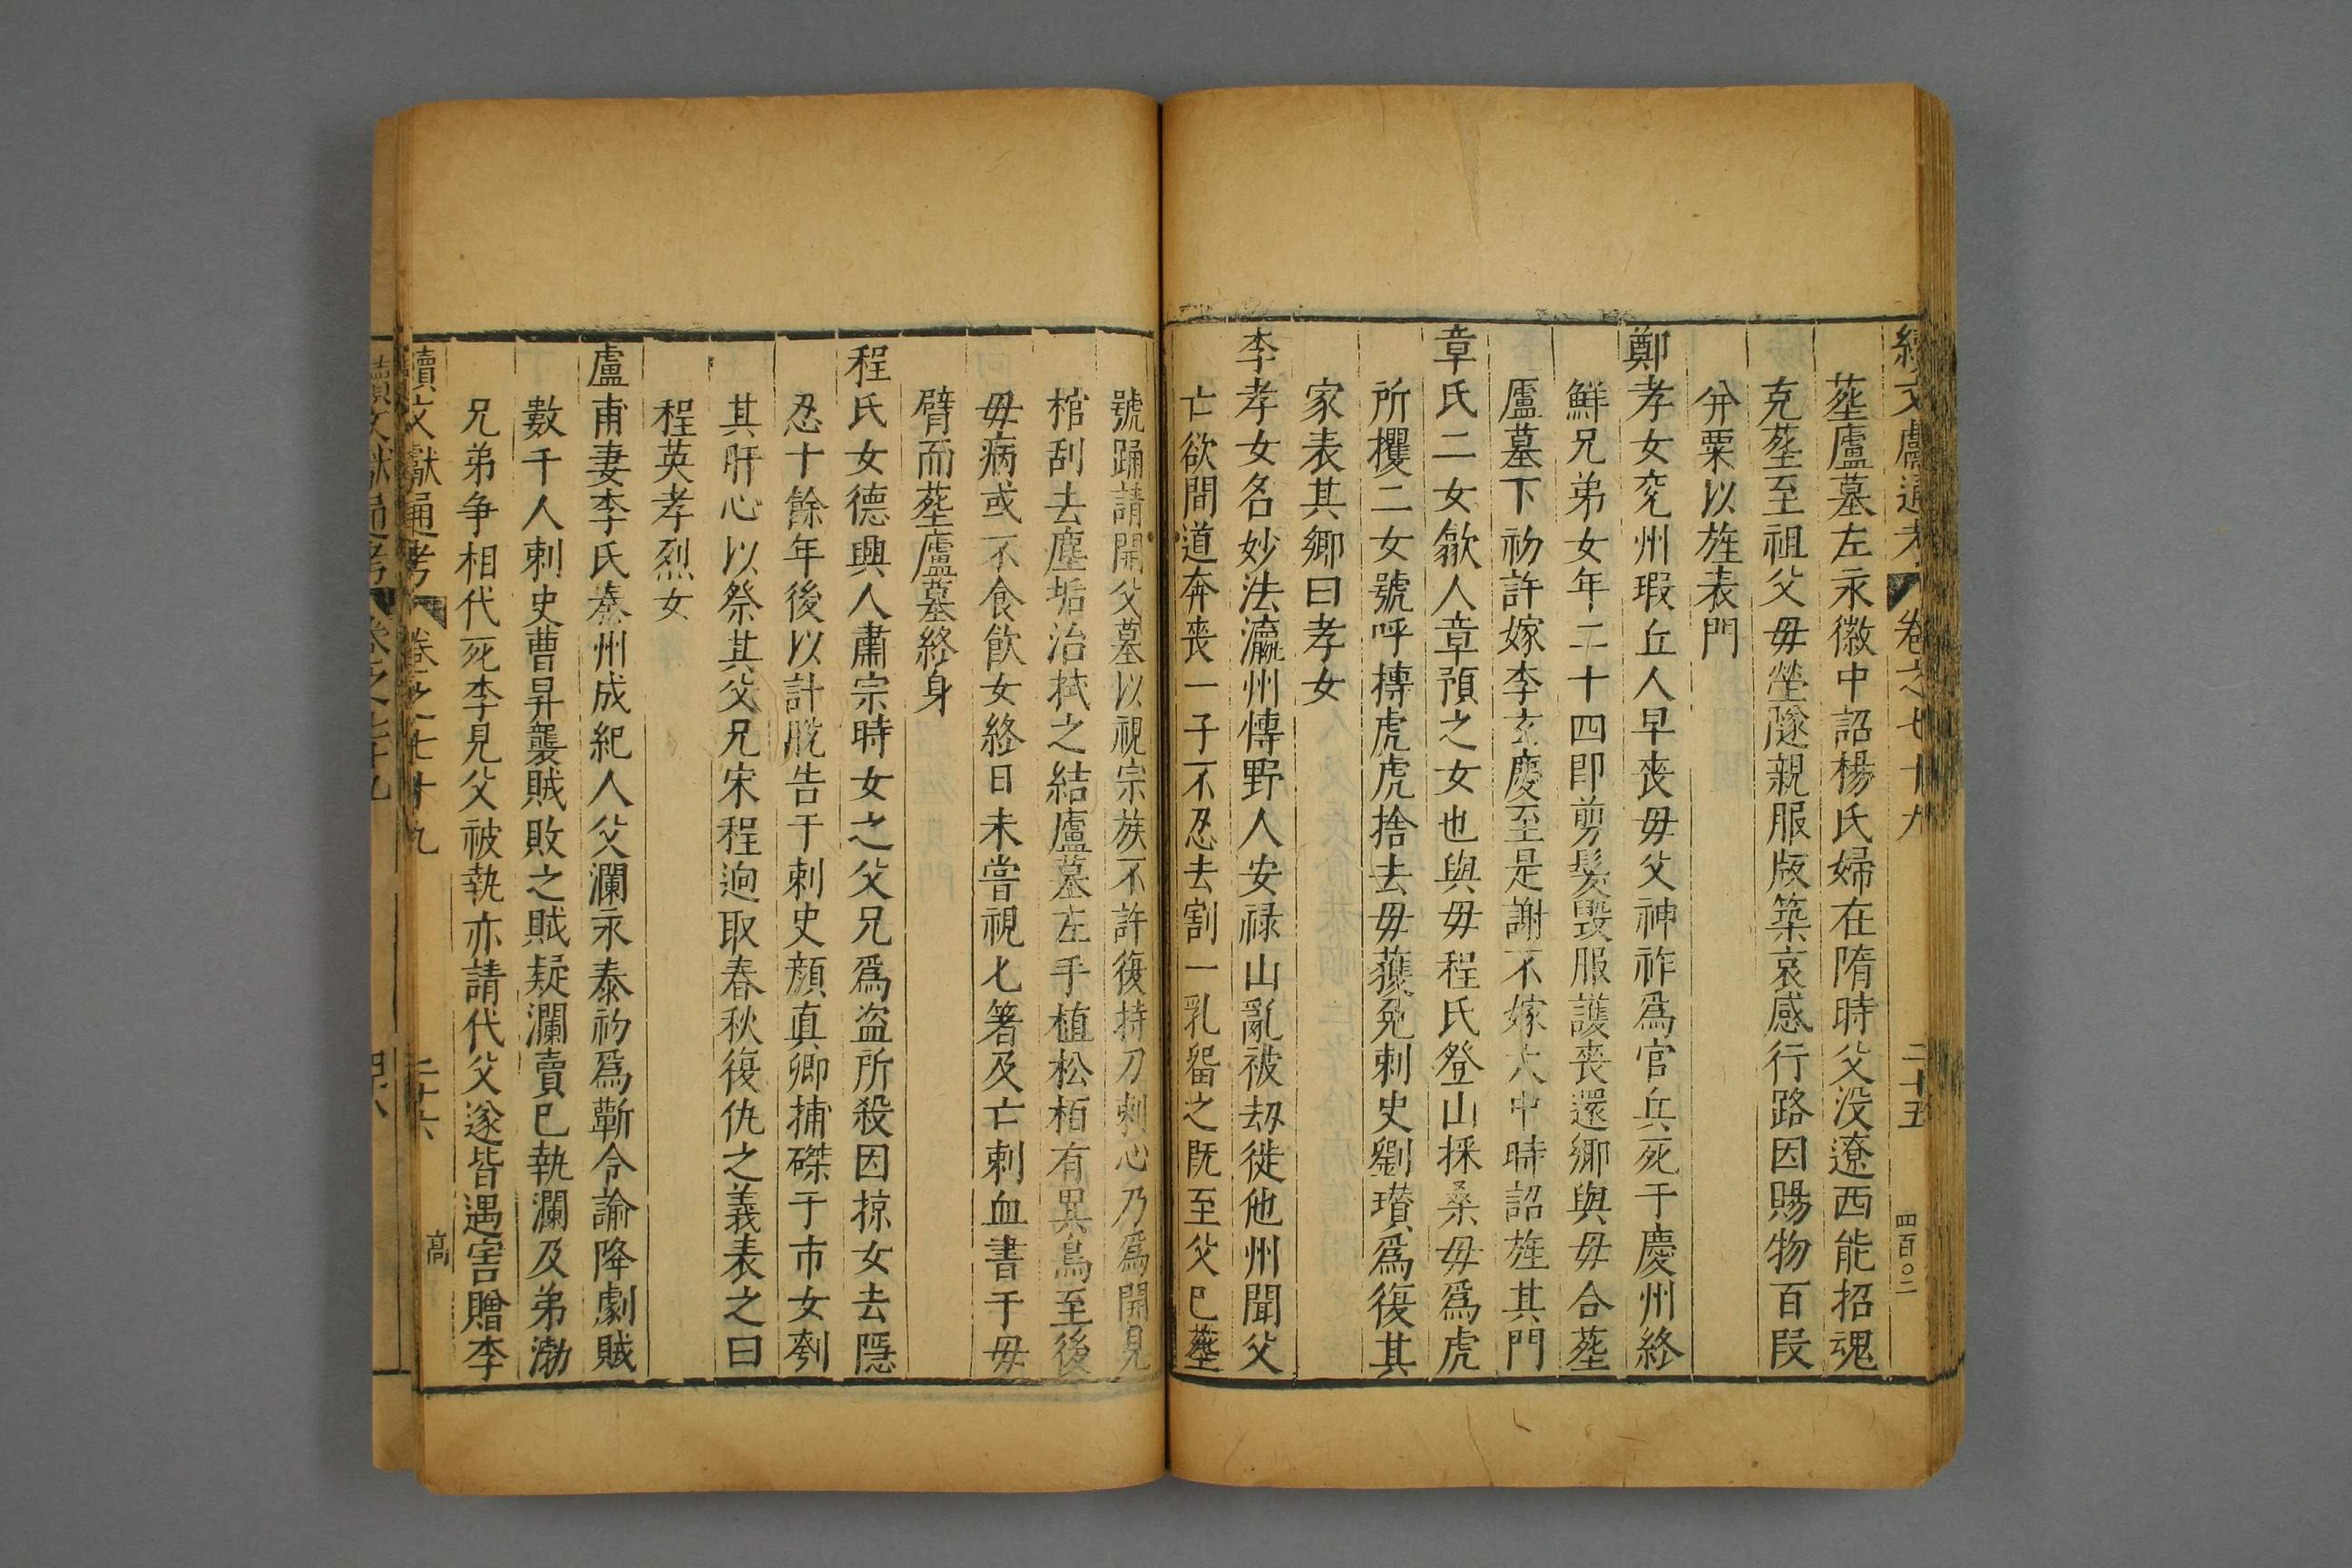 續文獻通考 卷之七十九 二十五 四百〇二
塟廬墓左永徽中詔楊氏婦在隋時父没遼西能招魂
克塟至祖父毋塋隧親服版築哀感行路因賜物百段
并粟以旌表門
鄭孝女兖州瑕丘人早喪毋父神祚爲官兵死于慶州終
鮮兄弟女年二十四卽剪髮毁服護喪還鄉與毋合塟
廬墓下初許嫁李玄慶至是謝不嫁大中時詔旌其門
章氏二女歙人章預之女也與毋程氏登山採桑毋爲虎
所攫二女號呼摶虎虎捨去毋獲免刺史劉瓚爲復其
家表其鄉曰孝女
李孝女名妙法瀛州博野人安禄山亂被刼徙他州聞父
亡欲間道奔喪一子不忍去割一乳畱之既至父已塟
號踊請開父墓以視宗族不許復持刀刺心乃爲開見
棺刮去塵垢治拭之結廬墓左手植松栢有異鳥至後
毋病或不食飲女終日未嘗視匕箸及亡刺血書于毋
臂而塟廬墓終身
程氏女德興人肅宗時女之父兄爲盗所殺因掠女去隱
忍十餘年後以計脱告于刺史顔真卿捕磔于市女刳
其肝心以祭其父兄宋程迥取春秋復仇之義表之曰
程英孝烈女
盧甫妻李氏秦州成紀人父瀾永泰初爲蘄令諭降劇賊
數千人刺史曹昇襲賊敗之賊疑瀾賣已執瀾及弟渤
兄弟争相代死李見父被執亦請代父遂皆遇害贈李
續文獻通考 卷之七十九 二十六 高
續文獻通考 卷之七十九